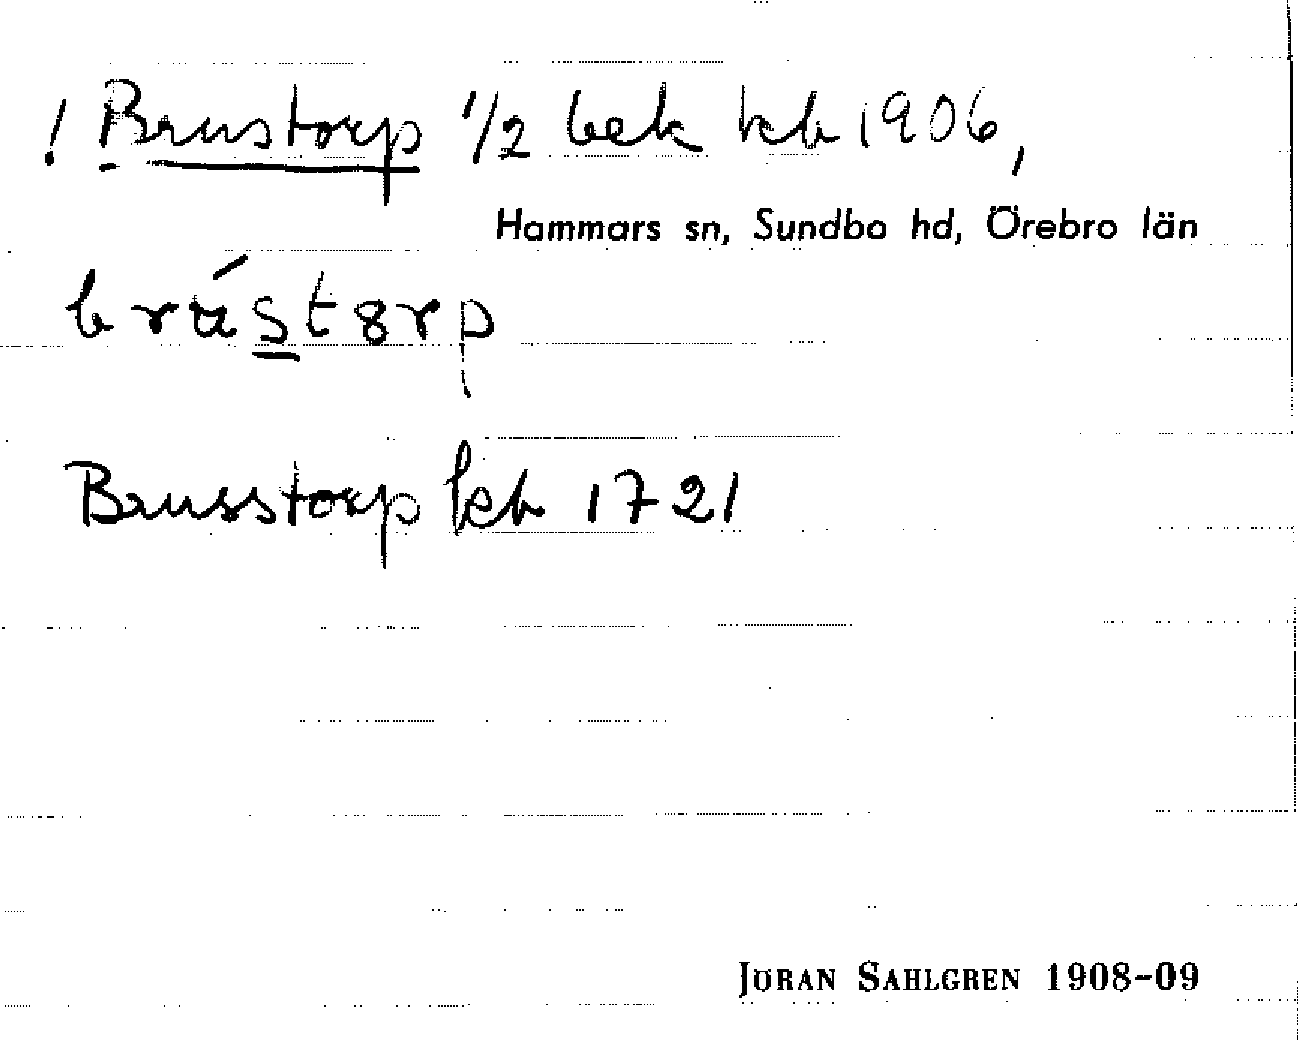 ! Brustorp 1/2 bek kb 1906,
Hammars sn, Sundbo hd, Örebro län
brústȣrp
Brusstorp kb 1721
JÖRAN SAHLGREN 1908-09